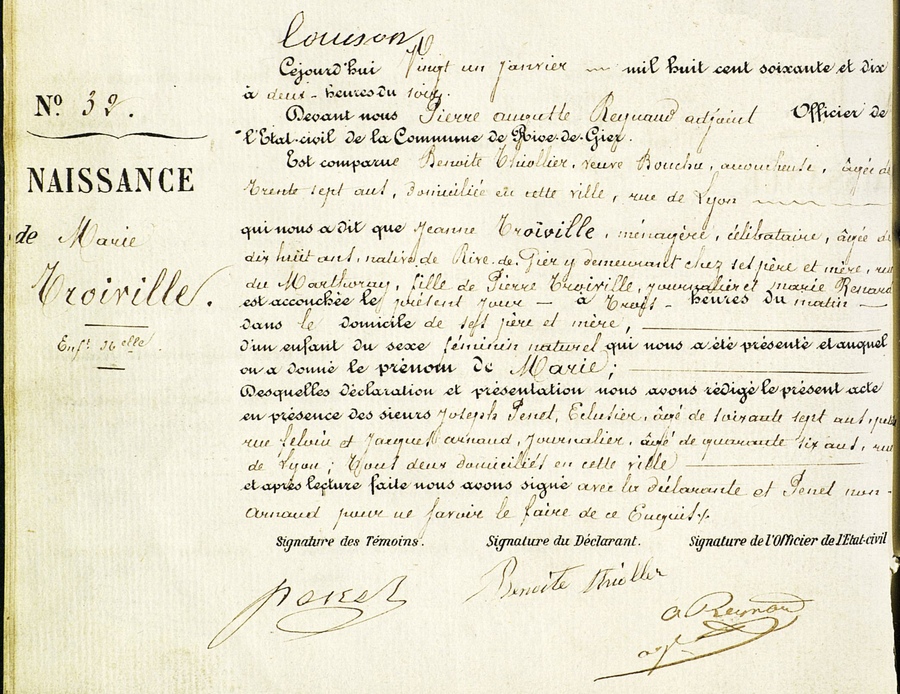 Couson
Cejourd'hui Vingt un Janvier — mil huit cent soixante et dix
à deux - heures du soir.
Devant nous Pierre auguste Reynaud adjoint Officier de
l'Etat-civil de la Commune de Rive-de-Gier.
Est comparue Benoite Thiollier, veuve Bouchu, accoucheuse, âgée de
trente sept ans, domiciliée en cette ville, rue de Lyon
qui nous a dit que Jeanne Troiville, ménagère, célibataire, âgée de
dix huit ans, native de Rive-de-Gier y demeurant chez ses père et mère, rue
du Marthoray, fille de Pierre Troiville, journalier et marie Renard
est accouchée le présent jour — à trois - heures du matin —
dans le domicile de ses père et mère,
d'un enfant du sexe féminin naturel qui nous a été présenté et auquel
on a donné le prénom de Marie;
Desquelles déclaration et présentation nous avons rédigé le présent acte
en présence des sieurs Joseph Penet, Eclusier, âgé de soixante sept ans,
rue et Jacques arnaud, Journalier, âgé de quarante six ans, rue
de Lyon; Tous deux domiciliés en cette ville
et après lecture faite nous avons signé avec la déclarante et Penet non -
Arnaud pour ne savoir le faire de ce Enquis
Signature des Témoins. Signature du Déclarant. Signature de l'Officier de l'Etat-civil
Penet Benoite thioller a Reynaud
Nº 32.
NAISSANCE
de Marie
Troiville.
Enf.t N.elle